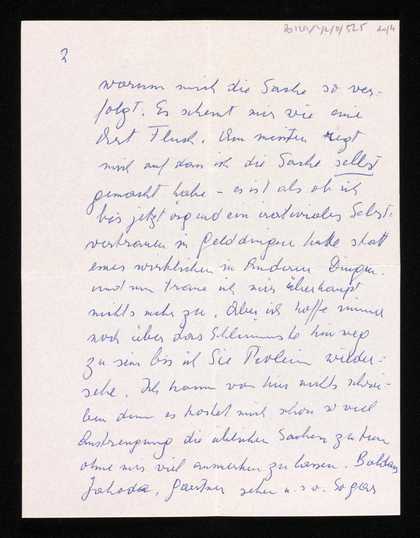 2
warum mich die Sache so ver-
folgt. Es scheint mir wie eine
Art Fluch. Am meisten regt
mich auf dass ich die Sache selbst
gemacht habe - es ist als ob ich
bis jetzt irgend ein irrationales Selbst-
vertrauen in Gelddingen hatte statt
eines wirklichen in Anderen Dingen.
und nun traue ich mir überhaupt
nichts mehr zu. Aber ich hoffe immer
noch über das Schlimmste hinweg
zu sein bis ich Sie wieder-
sehe. Ich kann von hier nichts schrei-
ben denn es kostet mich schon so viel
Anstrengung die üblichen Sachen zu tun
ohne mir viel anmerken zu lassen.
Jahoda, Gaertner sehen u.s.w. Sogar